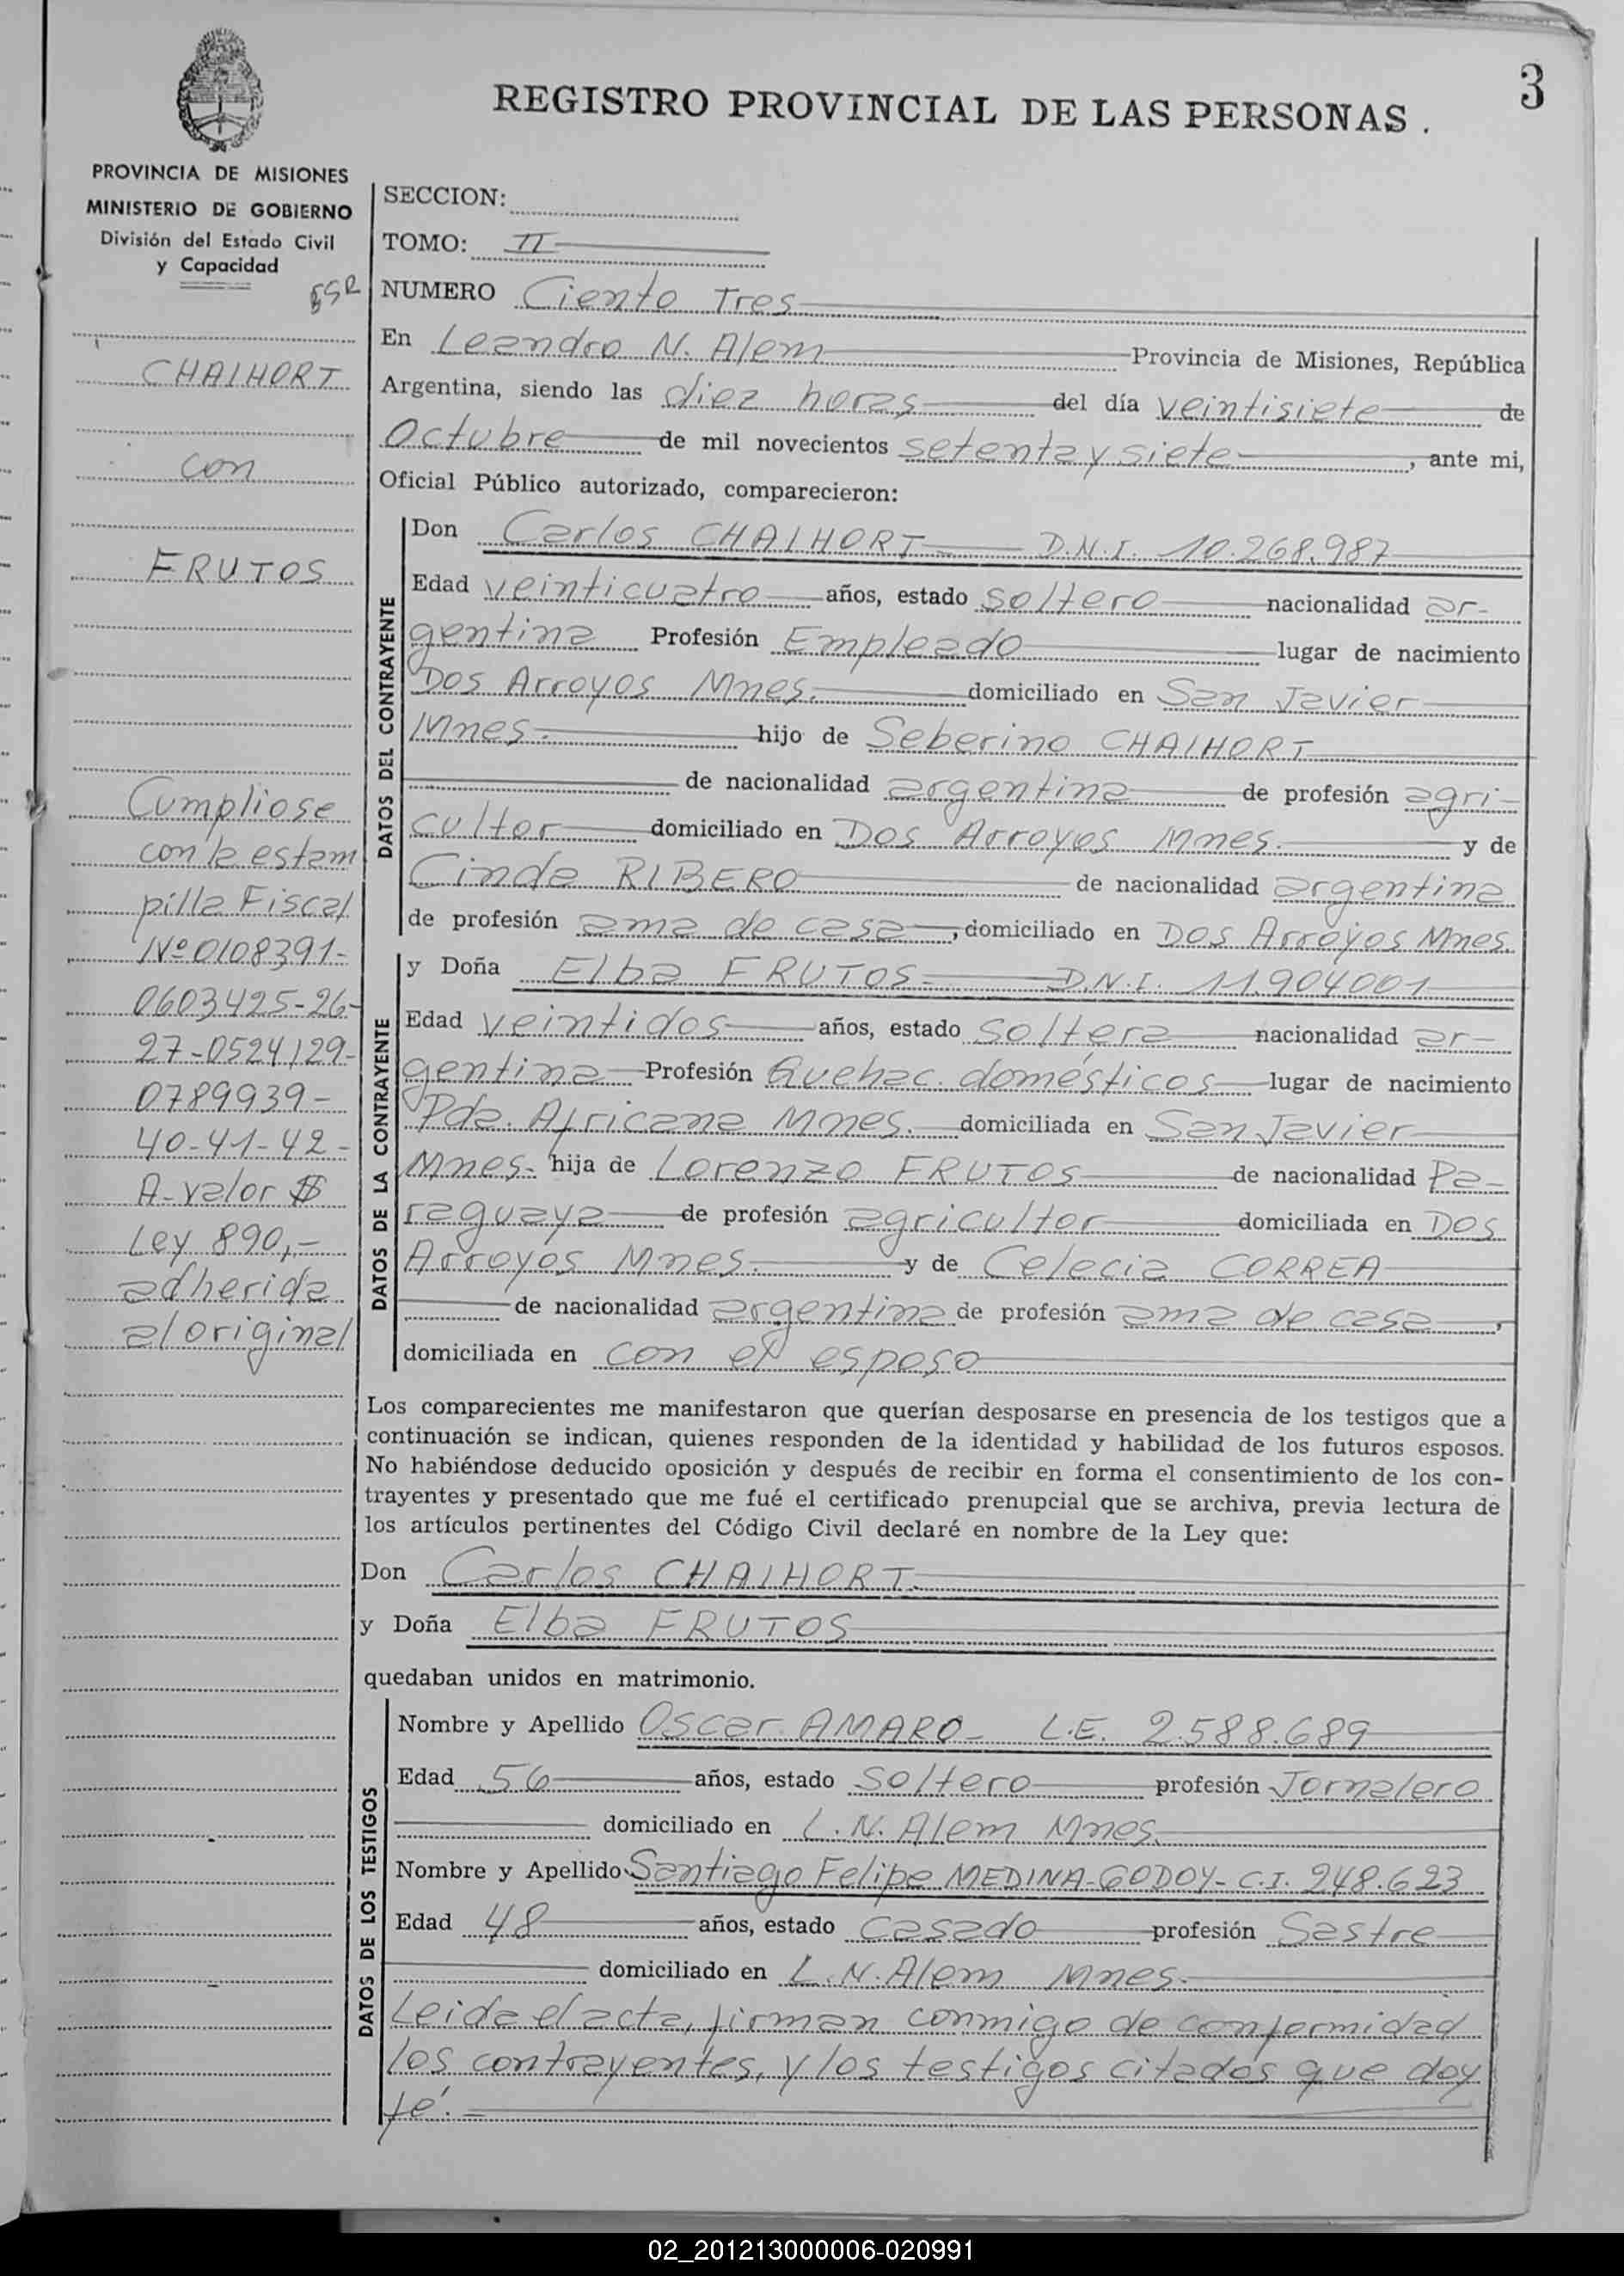 3
REGISTRO PROVINCIAL DE LAS PERSONAS.
PROVINCIA DE MISIONES
MINISTERIO DE GOBIERNO
División del Estado Civil
y Capacidad
CHALHORT
con
FRUTOS
Cumpliose
con la estam
pilla Fiscal
Nº 0108391-
0603425-26-
27-0524129-
0789939-
40-41-42-
A-valor $
Ley 890,-
adherida
al original
SECCION:
TOMO: II
NUMERO Ciento Tres
En Leandro N. Alem Provincia de Misiones, República
Argentina, siendo las diez horas del día veintisiete de
Octubre de mil novecientos setenta y siete, ante mi,
Oficial Público autorizado, comparecieron:
DATOS DEL CONTRAYENTE
Don Carlos CHALHORT D.N.I. 10.268.987
Edad veinticuatro años, estado soltero nacionalidad ar-
gentina Profesión Empleado lugar de nacimiento
Dos Arroyos Mnes. domiciliado en San Javier
Mnes. hijo de Seberino CHALHORT
de nacionalidad argentina de profesión agri-
cultor domiciliado en Dos Arroyos Mnes. y de
Cinda RIBERO de nacionalidad argentina
de profesión ama de casa, domiciliado en Dos Arroyos Mnes.
DATOS DE LA CONTRAYENTE
y Doña Elba FRUTOS D.N.I. 11.904001
Edad veintidos años, estado soltera nacionalidad ar-
gentina Profesión Quehac. domésticos lugar de nacimiento
Pda. Africana Mnes. domiciliada en San Javier
Mnes. hija de Lorenzo FRUTOS de nacionalidad Pa-
raguaya de profesión agricultor domiciliada en Dos
Arroyos Mnes. y de Celecia CORREA
de nacionalidad argentina de profesión ama de casa,
domiciliada en con el esposo
Los comparecientes me manifestaron que querían desposarse en presencia de los testigos que a
continuación se indican, quienes responden de la identidad y habilidad de los futuros esposos.
No habiéndose deducido oposición y después de recibir en forma el consentimiento de los con-
trayentes y presentado que me fué el certificado prenupcial que se archiva, previa lectura de
los artículos pertinentes del Código Civil declaré en nombre de la Ley que:
Don Carlos CHALHORT.
y Doña Elba FRUTOS
quedaban unidos en matrimonio.
DATOS DE LOS TESTIGOS
Nombre y Apellido Oscar AMARO- L.E. 2.588.689
Edad 56 años, estado Soltero profesión Jornalero
domiciliado en L.N. Alem Mnes.
Nombre y Apellido Santiago Felipe MEDINA-GODOY- C.I. 248.623
Edad 48 años, estado casado profesión Sastre
domiciliado en L.N. Alem Mnes.
Leida el acta, firman conmigo de conformidad
los contrayentes, y los testigos citados que doy
fé.
02_201213000006-020991